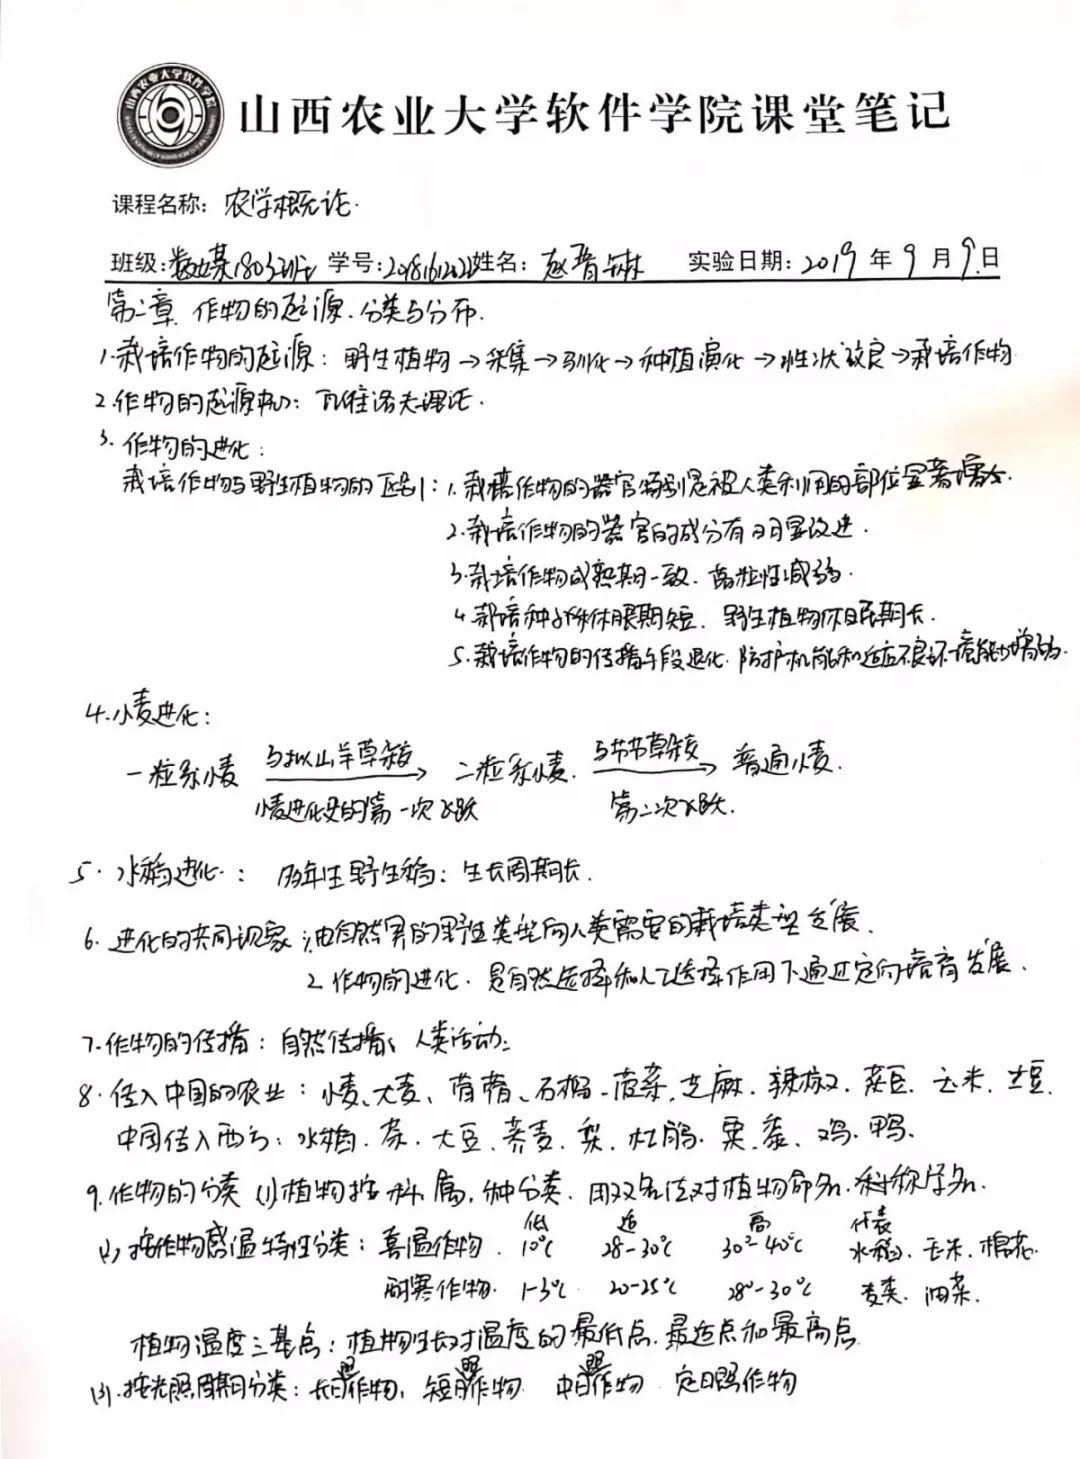 山西农业大学软件学院课堂笔记
课程名称：农学概论.
班级：数媒1803班 学号： 姓名：赵晋 实验日期：2019年9月9日
第二章 作物的起源、分类与分布.
1.栽培作物的起源：野生植物→采集→驯化→种植演化→性状改良→栽培作物
2.作物的起源中心：瓦维洛夫理论.
3.作物的进化：
栽培作物与野生植物的区别：1.栽培作物的器官特别是被人类利用的部位显著增大.
2.栽培作物的器官的成分有明显改进.
3.栽培作物成熟期一致.落粒性减弱.
4.栽培种子休眠期短.野生植物休眠期长.
5.栽培作物的传播手段退化.防护机能和适应不良环境能力减弱.
4.小麦进化：
一粒系小麦 与拟山羊草杂交 二粒系小麦. 与节节草杂交 普通小麦.
小麦进化史的第一次飞跃 第二次飞跃.
5.水稻进化：多年生野生稻：生长周期长.
6.进化的共同现象：1.由自然界的野生类型向人类需要的栽培类型发展.
2.作物的进化.是自然选择和人工选择作用下通过定向培育发展.
7.作物的传播：自然传播、人类活动.
8.传入中国的农业：小麦、大麦、苜蓿、石榴、菠菜、芝麻、辣椒、蚕豆、玉米、土豆.
中国传入西方：水稻.茶.大豆.荞麦.梨.杜鹃.粟.鸡.鸭.
9.作物的分类 (1)植物按科.属.种分类.用双名法对植物命名.科称学名.
低 适 高 代表
(2)按作物感温特性分类：喜温作物.10℃ 28-30℃ 30-40℃ 水稻.玉米.棉花.
耐寒作物.1-3℃ 20-25℃ 28-30℃ 麦类.油菜.
植物温度三基点：植物生长对温度的最低点.最适点和最高点.
(3).按光照周期分类：长日照作物，短日照作物 中日照作物 定日照作物